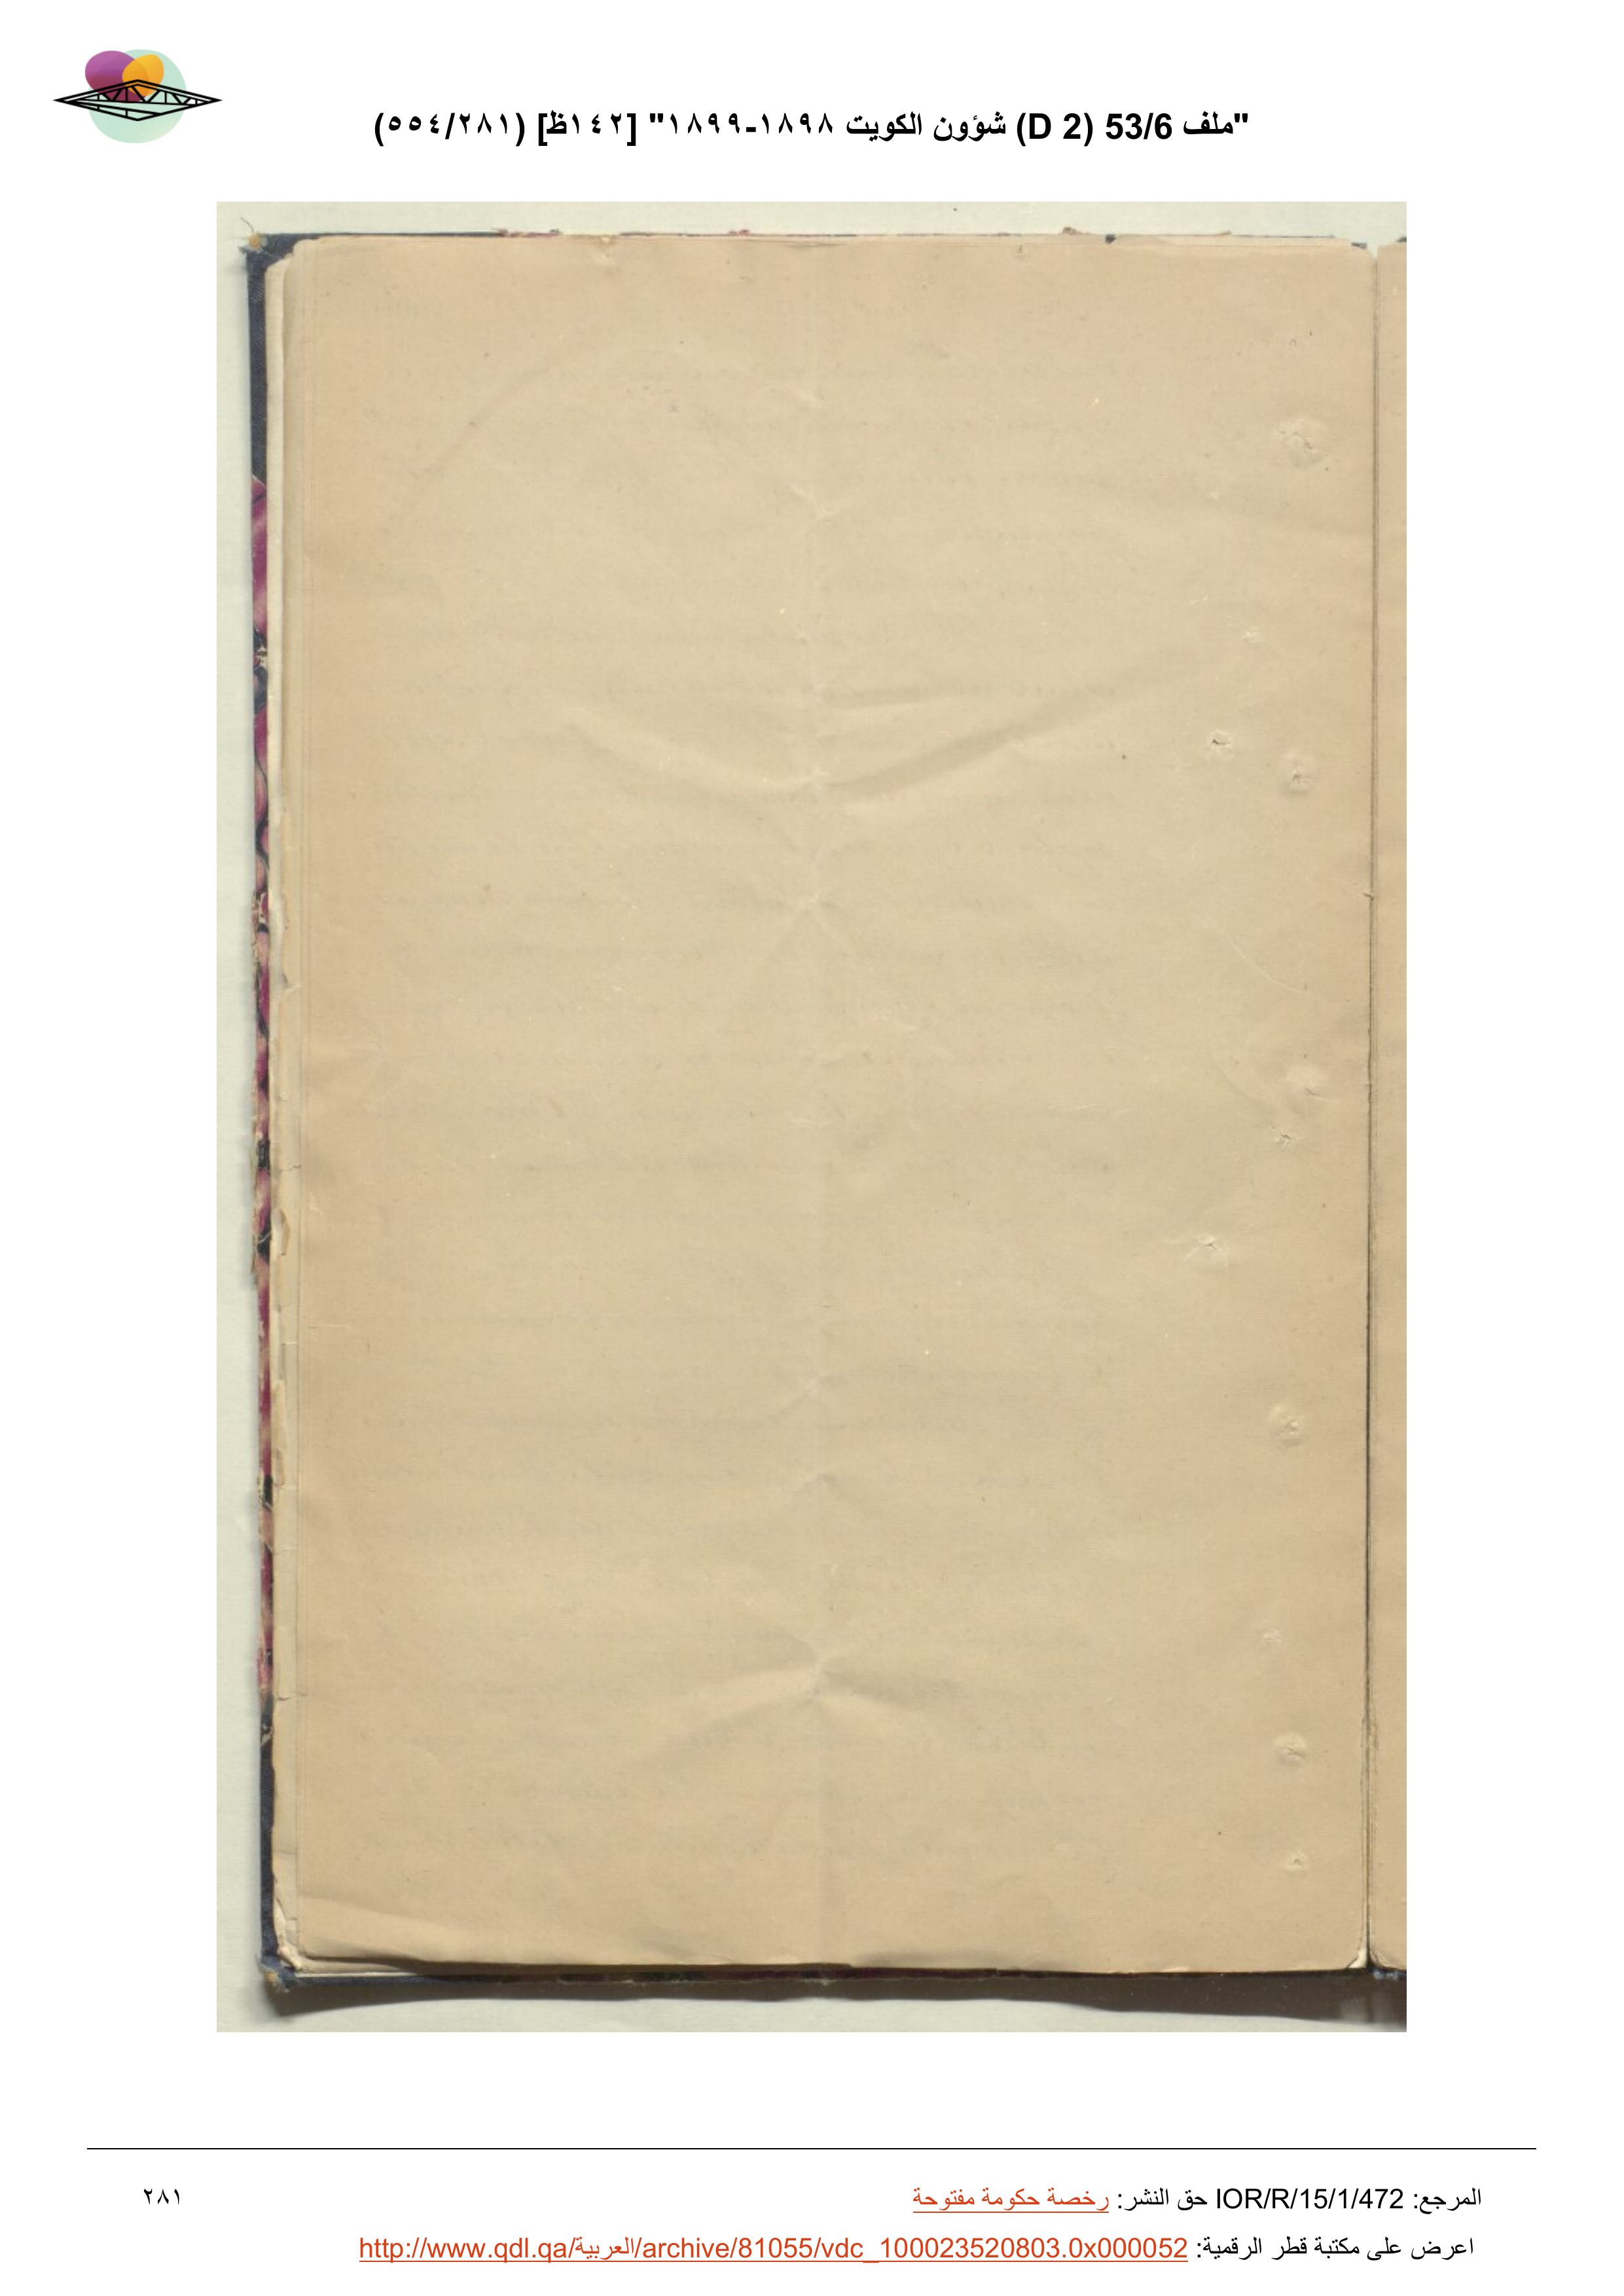 "ملف 53/6 (D 2) شؤون الكويت ١٨٩٨-١٨٩٩" [١٤٢ظ] (٥٥٤/٢٨١)
المرجع: IOR/R/15/1/472 حق النشر: رخصة حكومة مفتوحة
٢٨١
اعرض على مكتبة قطر الرقمية: http://www.qdl.qa/العربية/archive/81055/vdc_100023520803.0x000052